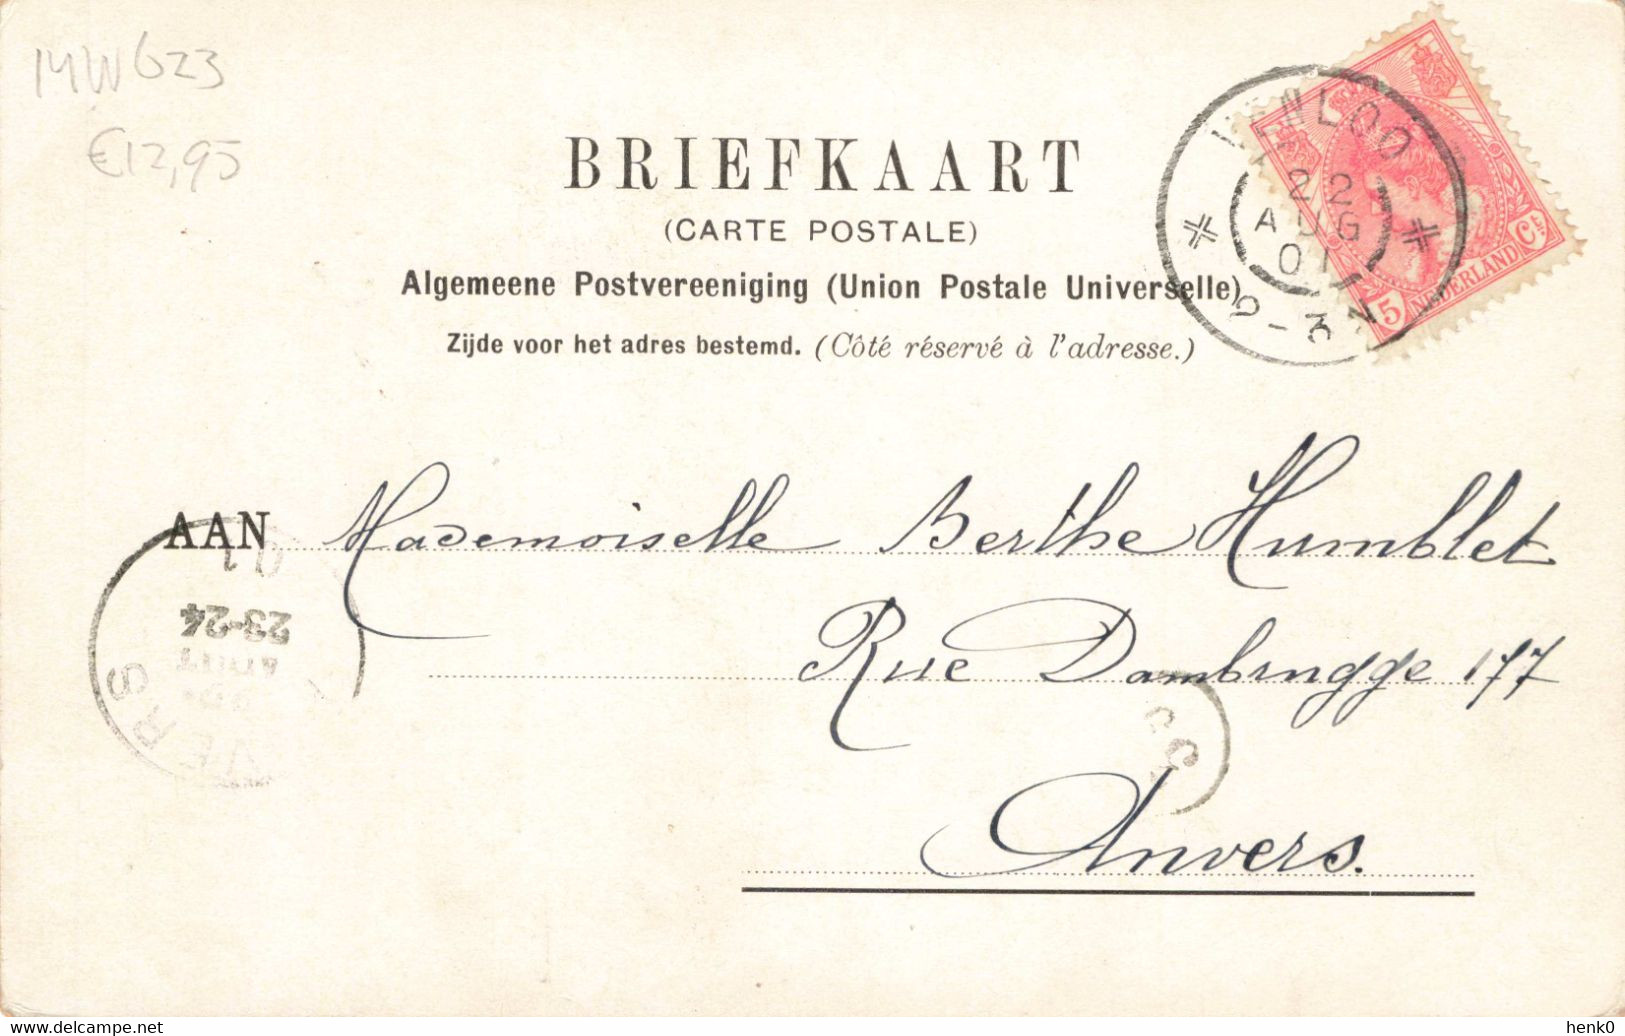 14W623
€12,95
BRIEFKAART
(CARTE POSTALE)
Algemeene Postvereeniging (Union Postale Universelle)
Zijde voor het adres bestemd. (Côté réservé à l'adresse.)
VENLOO
22
AUG
01
2-3N
5 NEDERLAND Ct.
AAN Mademoiselle Berthe Humblet
Rue Dambrugge 177
Anvers.
01
23-24
AOUT
VERS
www.delcampe.net
henk0